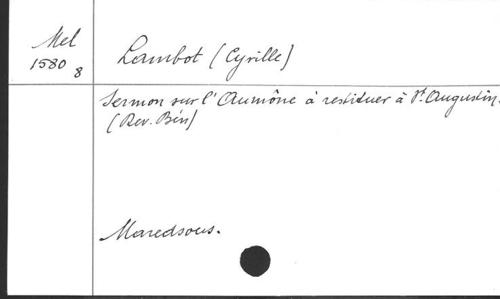 Mel
1580 8
Lambot (Cyrille)
Sermon sur l'Aumône à restituer à St. Augustin.
(Rev. Bén)
Maredsous.